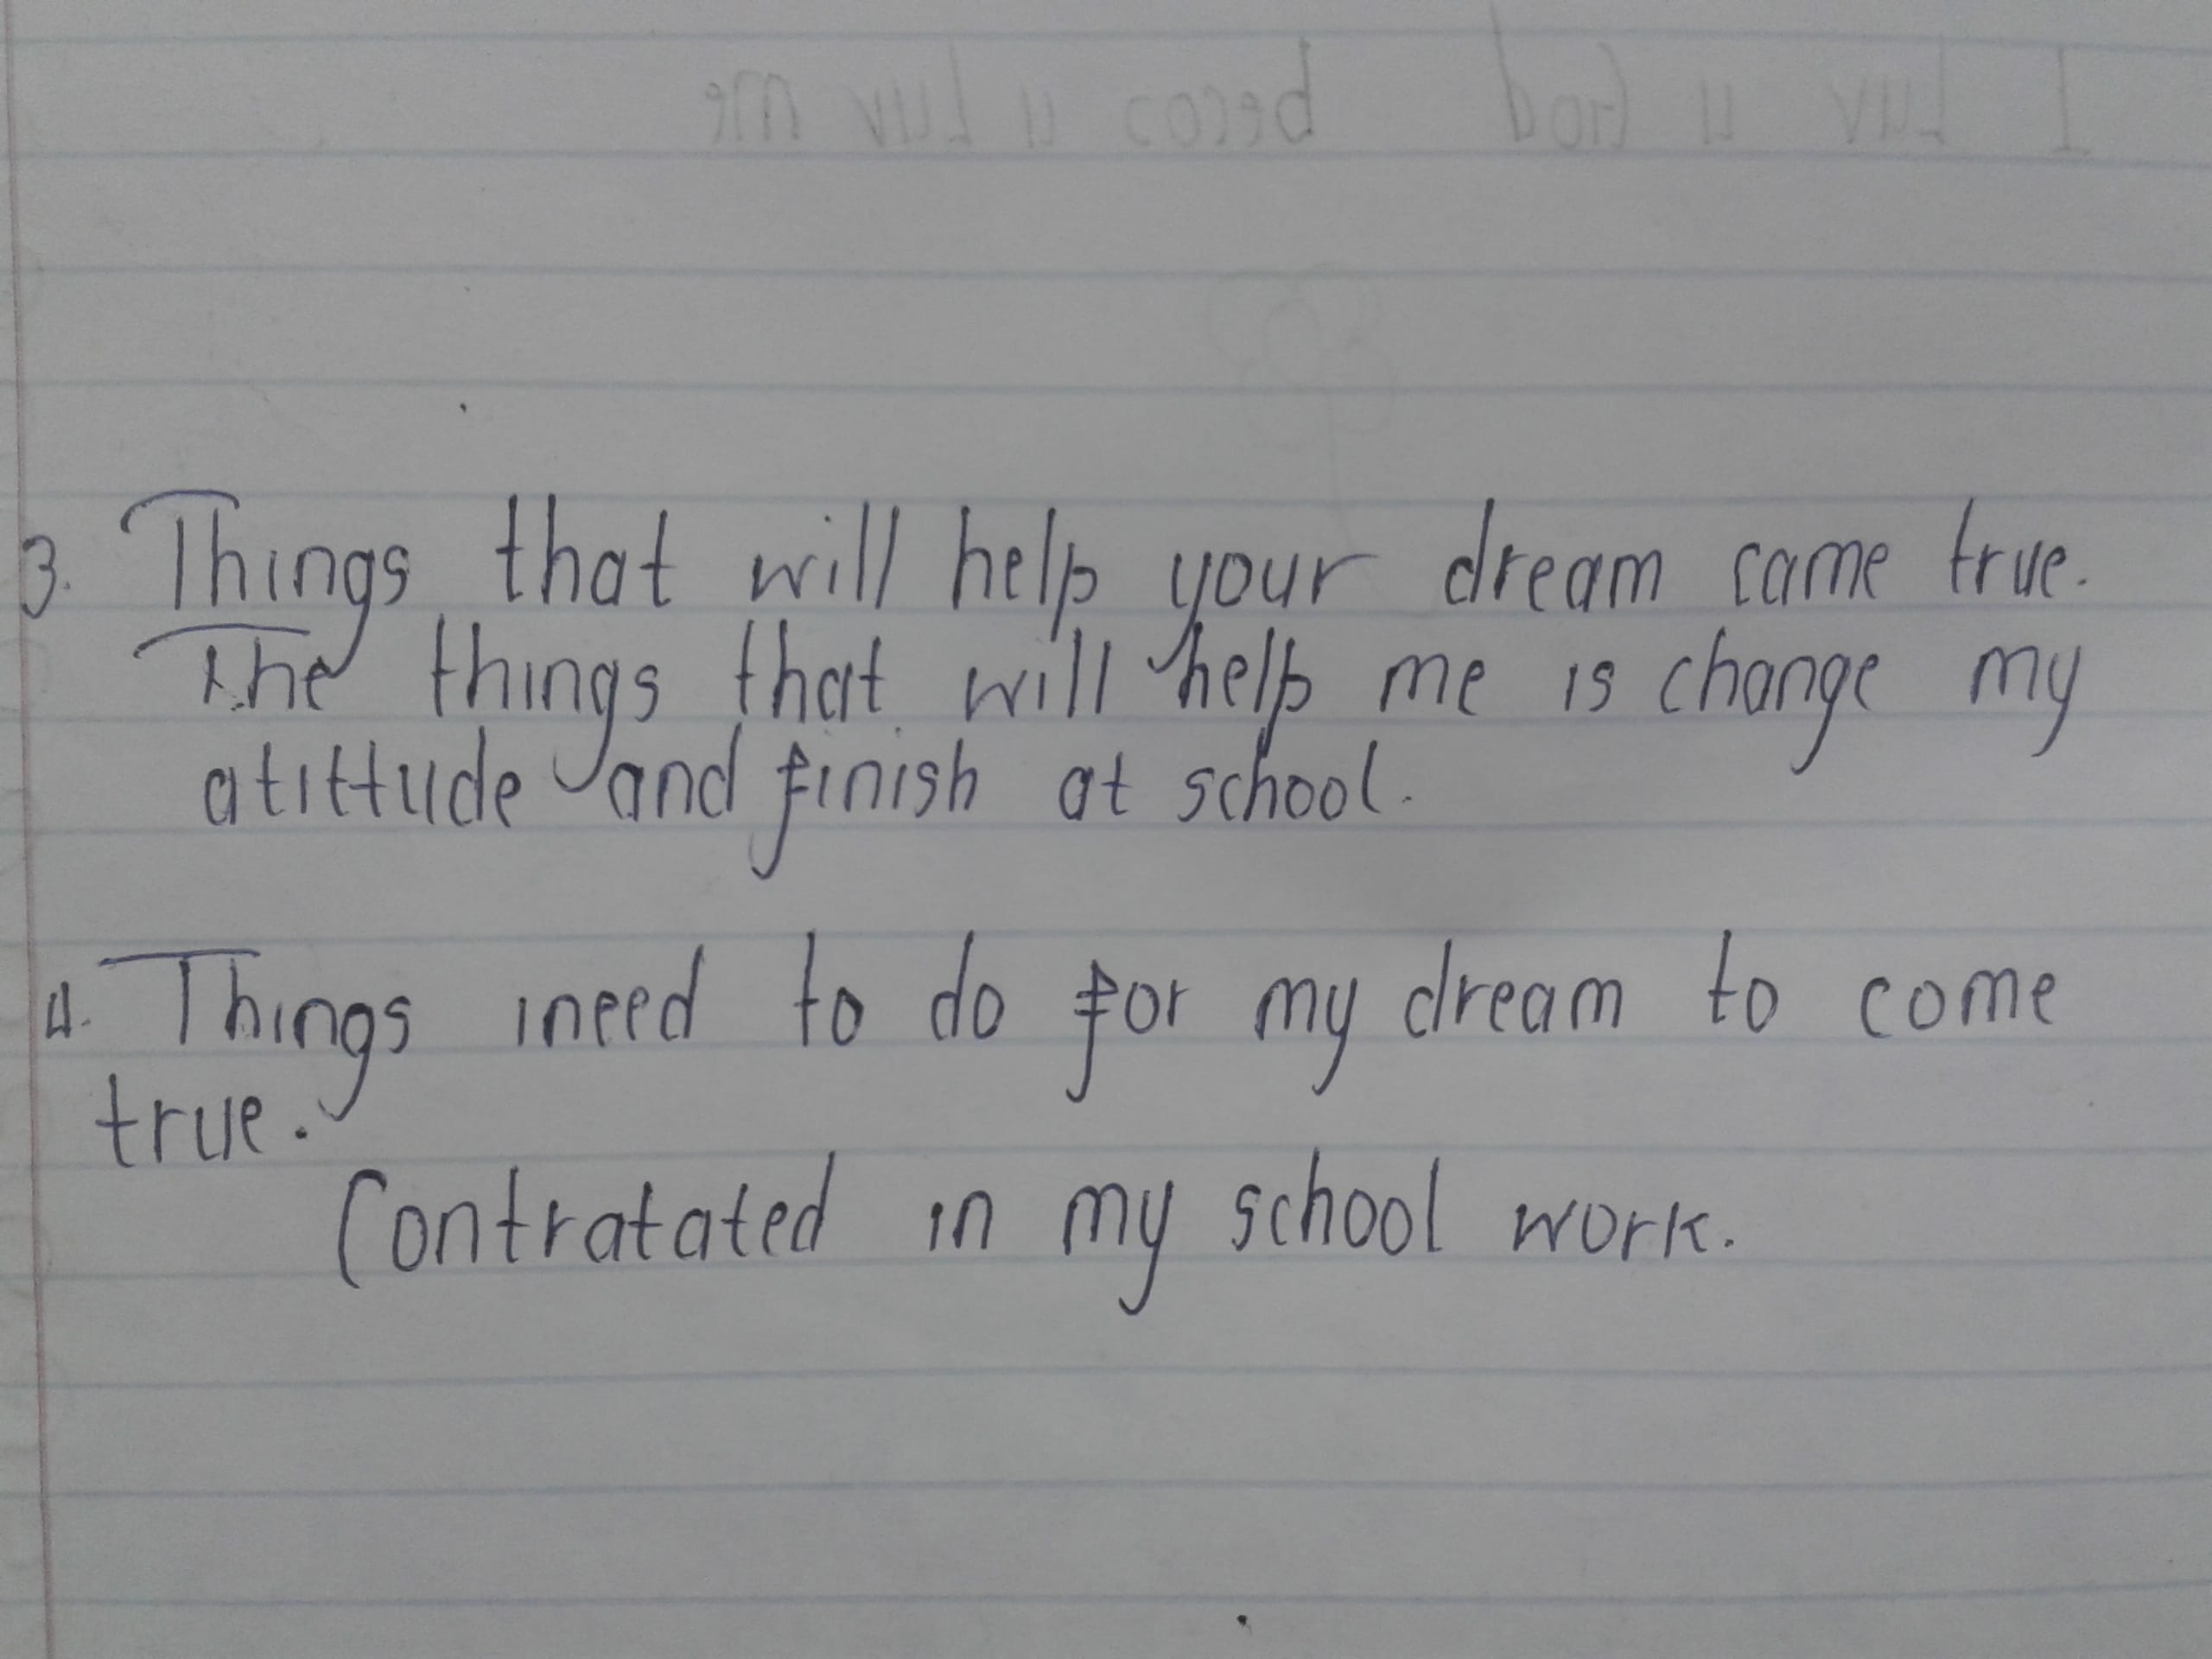 I Luv u God becos u Luv me
3. Things that will help your dream came true.
The things that will help me is change my
atittude and finish at school.
4. Things ineed to do for my dream to come
true.
Contratated in my school work.